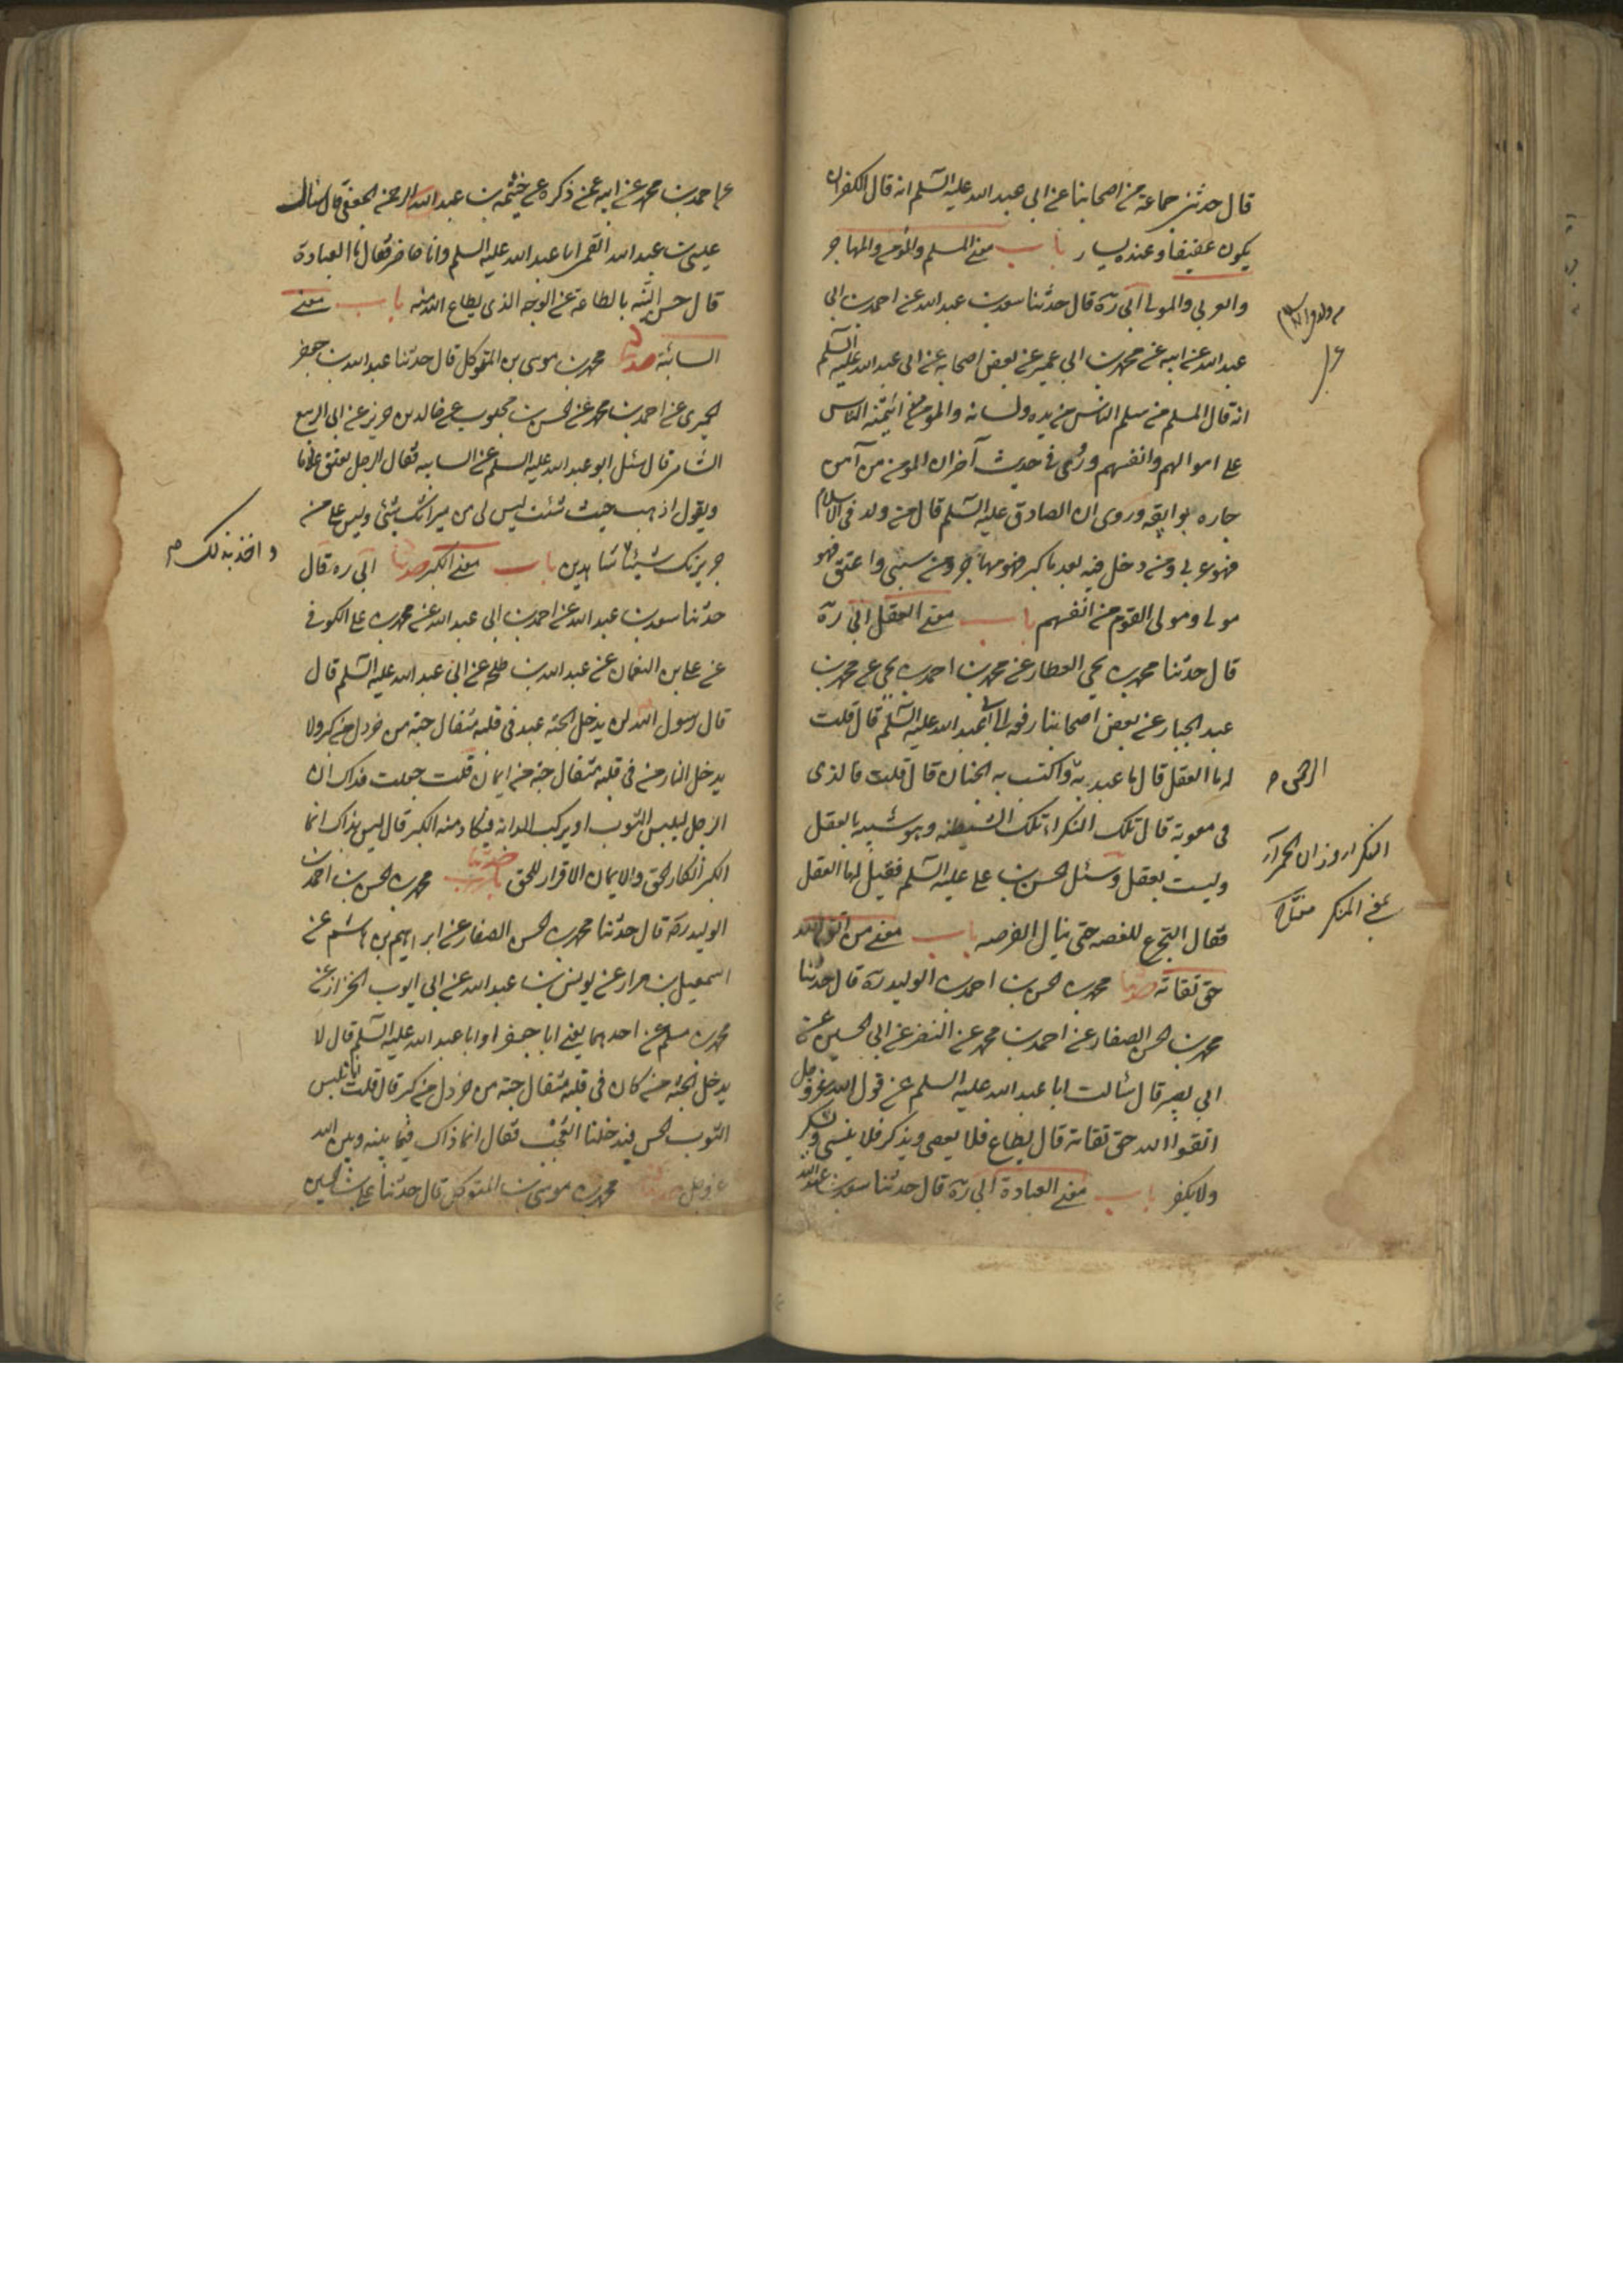 قال حدثنى جماعة من اصحابنا عن ابى عبد الله عليه السلم انه قال الكفو ان
يكون عفيفا وعنده يسار باب معنى المسلم والمؤمن والمهاجر
والعربي والمولى ابى ره قال حدثنا سعد بن عبد الله عن احمد بن ابى
عبد الله عن ابيه عن محمد بن ابى عمير عن بعض اصحابه عن ابى عبد الله عليه السلم
انه قال المسلم من سلم الناس من يده ولسانه والمؤمن من ائتمنه الناس
على اموالهم وانفسهم وروى فى حديث آخر ان المؤمن من آمن
جاره بوايقه وروى ان الصادق عليه السلم قال من ولد فى الاسلام
فهو عربى ومن دخل فيه بعد ما كبر فهو مهاجر ومن سبى واعتق فهو
مولى ومولى القوم من انفسهم باب معنى العقل ابى ره
قال حدثنا محمد بن يحيى العطار عن محمد بن احمد بن يحيى عن محمد بن
عبد الجبار عن بعض اصحابنا رفعه الى ابى عبد الله عليه السلم قال قلت
له ما العقل قال ما عبد به واكتسب به الجنان قال قلت فالذى
فى معوية قال تلك النكراء تلك الشيطنه وهو شبيه بالعقل
وليست بعقل وسئل الحسن بن على عليه السلم فقيل لها العقل
فقال التجرع للغصه حتى ينال الفرصه باب معنى من اتقوا الله
حق تقاته حدثنا محمد بن الحسن بن احمد بن الوليد ره قال حدثنا
محمد بن الحسن الصفار عن احمد بن محمد عن النضر عن ابى الحسين عن
ابى بصير قال سئالت ابا عبد الله عليه السلم عن قول الله عز وجل
اتقوا الله حق تقاته قال يطاع فلا يعصى ويذكر فلا ينسى ويشكر
ولا يكفر باب معنى العبادة ابى ره قال حدثنا سعد بن عبد الله
الرحمن
النكراء وزان الحمراء
بمعنى المنكر
عن احمد بن محمد عن ابيه عمن ذكره عن خيثمه بن عبد الرحمن الجعفى قال سئال
عيسى بن عبد الله القمى ابا عبد الله عليه السلم وانا حاضر فقال ما العبادة
قال حسن النية بالطاعة عن الوجه الذى يطاع الله منه باب معنى
السائبة حدثنا محمد بن موسى بن المتوكل قال حدثنا عبد الله بن جعفر
الحميرى عن احمد بن محمد عن الحسن بن محبوب عن خالد بن جرير عن ابى الربيع
الشامى قال سئل ابو عبد الله عليه السلم عن السايبه فقال الرجل يعتق غلاما
ويقول اذهب حيث شئت ليس لى من ميراثك شئ وليس على من
جريرتك شيئا شاهدين باب معنى الكبر حدثنا ابى ره قال
حدثنا سعد بن عبد الله عن احمد بن ابى عبد الله عن محمد بن على الكوفى
عن على بن النعمان عن عبد الله بن طلحه عن ابى عبد الله عليه السلم قال
قال رسول الله لن يدخل الجنة عبد فى قلبه مثقال حبة من خردل من كبر ولا
يدخل النار من فى قلبه مثقال حبة من ايمان قلت جعلت فداك ان
الرجل ليلبس الثوب او يركب الدابه فيكاد منه الكبر قال ليس بذاك انما
الكبر انكار الحق والايمان الاقرار للحق حدثنا محمد بن الحسن بن احمد بن
الوليد ره قال حدثنا محمد بن الحسن الصفار عن ابراهيم بن هاشم عن
اسمعيل بن مرار عن يونس بن عبد الله عن ابى ايوب الخزاز عن
محمد بن مسلم عن احدهما يعنى ابا جعفر او ابا عبد الله عليه السلم قال لا
يدخل الجنة من كان فى قلبه مثقال حبة من خردل من كبر قال قلت انا نلبس
الثوب الحسن فيدخلنا العجب فقال انما ذاك فيما بينه وبين الله
عز وجل حدثنا محمد بن موسى بن المتوكل قال حدثنا على بن الحسين